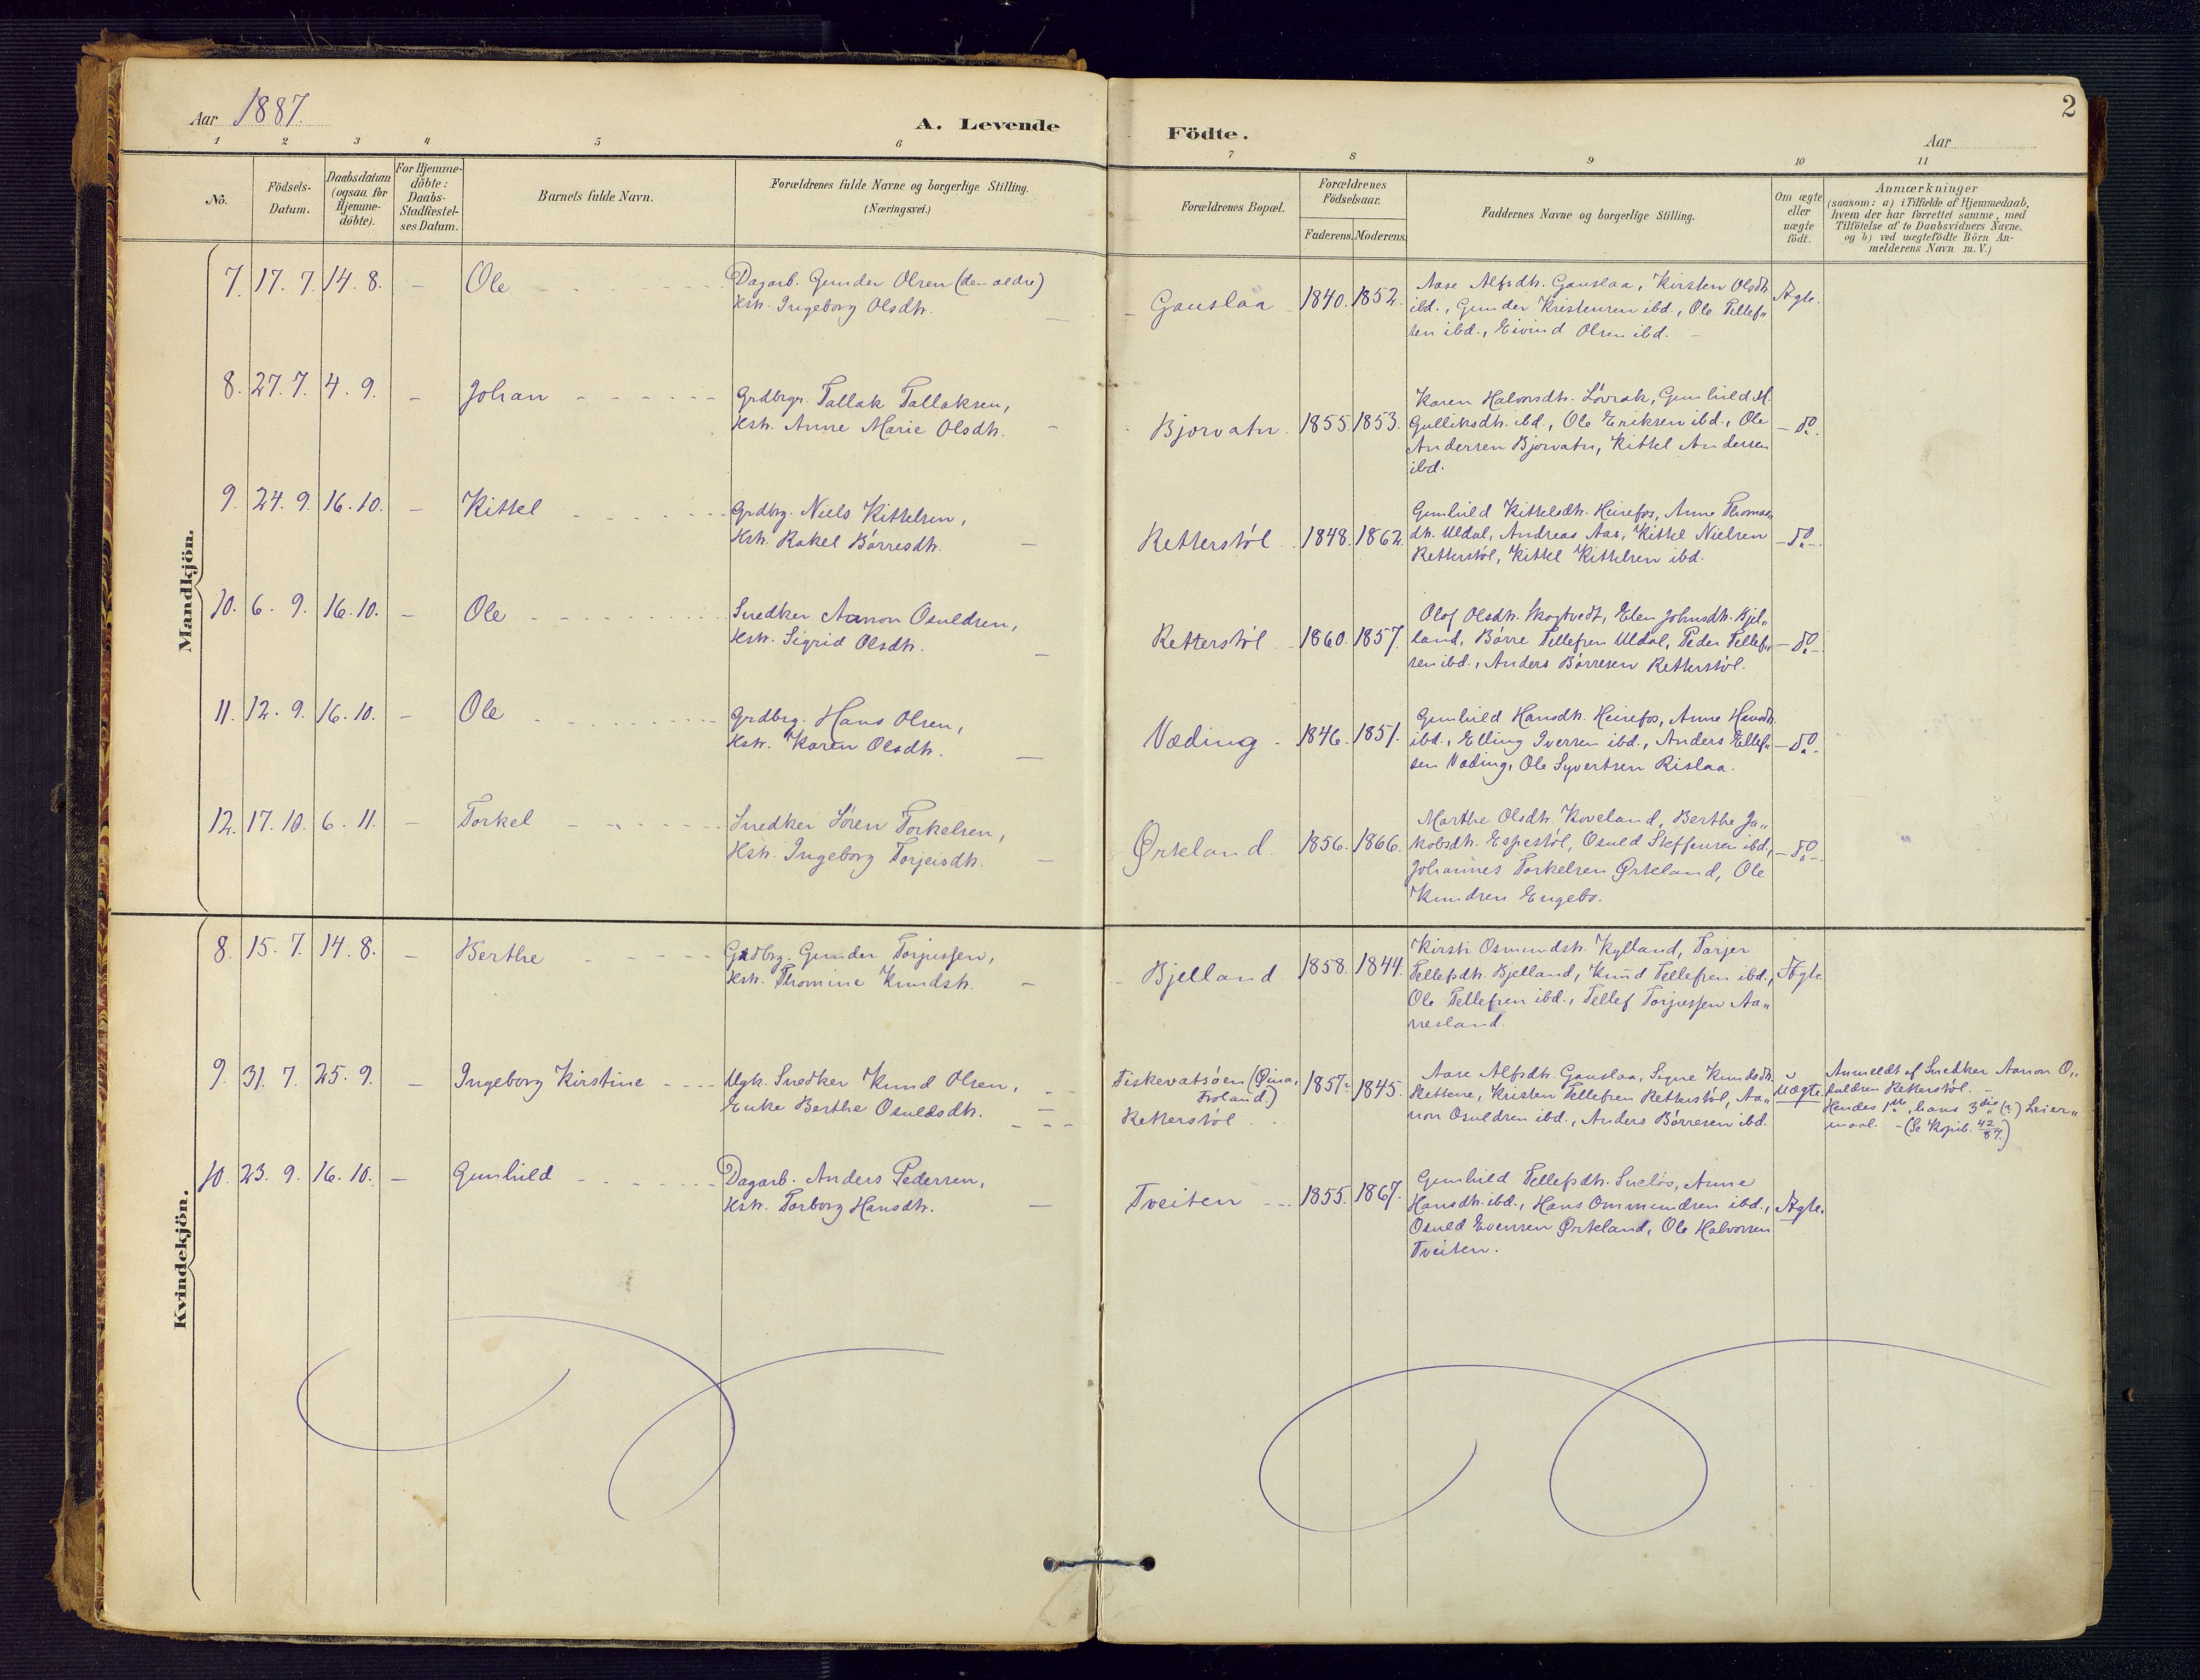 Aar 1887.
A. Levende Födte.
2
Aar
1 2 3 4 5 6 7 8 9 10 11
Nö.
Födsels-Datum.
Daabsdatum (ogsaa for Hjemme-döbte).
For Hjemme-döbte: Daabs-Stadfæstel-ses Datum.
Barnets fulde Navn.
Forældrenes fulde Navne og borgerlige Stilling.
(Næringsvei.)
Forældrenes Bopæl.
Forældrenes Födselsaar.
Faderens. Moderens.
Faddernes Navne og borgerlige Stilling.
Om ægte eller uægte födt.
Anmærkninger
(saasom: a) i Tilfælde af Hjemmedaab,
hvem der har forrettet samme, med
Tilföielse af to Daabsvidners Navne,
og b) ved uægtefödte Börn An-
melderens Navn m. V.)
Mandkjön.
7. 17. 7. 14. 8. – Ole
Dagarb. Gunder Olsen (den ældre)
Kstr. Ingeborg Olsdtr.
Gauslaa 1840. 1852.
Aase Alfsdtr. Gauslaa, Kirsten Olsdtr.
ibd., Gunder Kristensen ibd., Ole Tellef„
sen ibd., Eivind Olsen ibd. –
Ægte.
8. 27. 7. 4. 9. – Johan
Grdbrgr. Tallak Tallaksen,
Kstr. Anne Marie Olsdtr.
Bjorvatn 1855. 1853.
Karen Halvorsdtr. Lövrak, Gunhild M.
Gulliksdtr. ibd., Ole Eriksen ibd., Ole
Andersen Bjorvatn, Kittel Andersen
ibd.
– do.
9. 24. 9. 16. 10. – Kittel
Grdbrg. Niels Kittelsen,
Kstr. Rakel Börresdtr.
Retterstöl 1848. 1862.
Gunhild Kittelsdtr. Heirefos, Anne Thomas„
dtr. Uldal, Andreas Aas, Kittel Nielsen
Retterstöl, Kittel Kittelsen ibd.
– do –
10. 6. 9. 16. 10. – Ole
Snedker Aanon Osuldsen,
Kstr. Sigrid Olsdtr.
Retterstöl 1860. 1857.
Olof Olsdtr. Skogtvedt, Elen Johnsdtr. Bjel„
land, Börre Tellefsen Uldal, Peder Tellef„
sen ibd., Anders Börresen Retterstöl.
– do –
11. 12. 9. 16. 10. – Ole
Grdbrg. Hans Olsen,
Kstr. Karen Olsdtr.
Væding 1846. 1851.
Gunhild Hansdtr. Heirefos, Anne Hansdtr.
ibd., Elling Iversen ibd., Anders Ellef„
sen Væding, Ole Syvertsen Rislaa.
– do –
12. 17. 10. 6. 11. – Torkel
Snedker Sören Torkelsen,
Kstr. Ingeborg Torjeisdtr.
Ørkeland 1856. 1866.
Marthe Olsdtr. Koveland, Berthe Ja„
kobsdtr. Espestöl, Osuld Steffensen ibd.,
Johannes Torkelsen Ørkeland, Ole
Knudsen Engebo.
– do –
Kvindekjön.
8. 15. 7. 14. 8. – Berthe
Grdbrg. Gunder Torjussen,
Kstr. Thomine Knudsdtr.
Bjelland 1858. 1844.
Kirsti Osmundsdtr. Kylland, Torjer
Tellefsdtr. Bjelland, Knud Tellefsen ibd.,
Ole Tellefsen ibd., Tellef Torjussen Aa„
nesland.
Ægte
9. 31. 7. 25. 9. – Ingeborg Kirstine
Ugk. Snedker Knud Olsen,
Enke Berthe Osuldsdtr.
Fiskevatsøen
Froland.)
Retterstöl
1857. 1845.
Aase Alfsdtr. Gauslaa, Signe Knudsdtr.
Rettene, Kristen Tellefsen Retterstöl, Aa„
non Osuldsen ibd., Anders Börresen ibd.
Uægte.
Anmeldt af Snedker Aanon O„
suldsen Retterstöl. –
Hendes 1ste, hans 3die (?) Leier„
maal. – (Se Kopib. 42/87.)
10. 23. 9. 16. 10. – Gunhild
Dagarb. Anders Pedersen,
Kstr. Torborg Hansdtr.
Tveiten 1855. 1867.
Gunhild Tellefsdtr. Sneløs, Anne
Hansdtr. ibd., Hans Ommundsen ibd.,
Osuld Evensen Ørkeland, Ole Halvorsen
Tveiten.
Ægte.